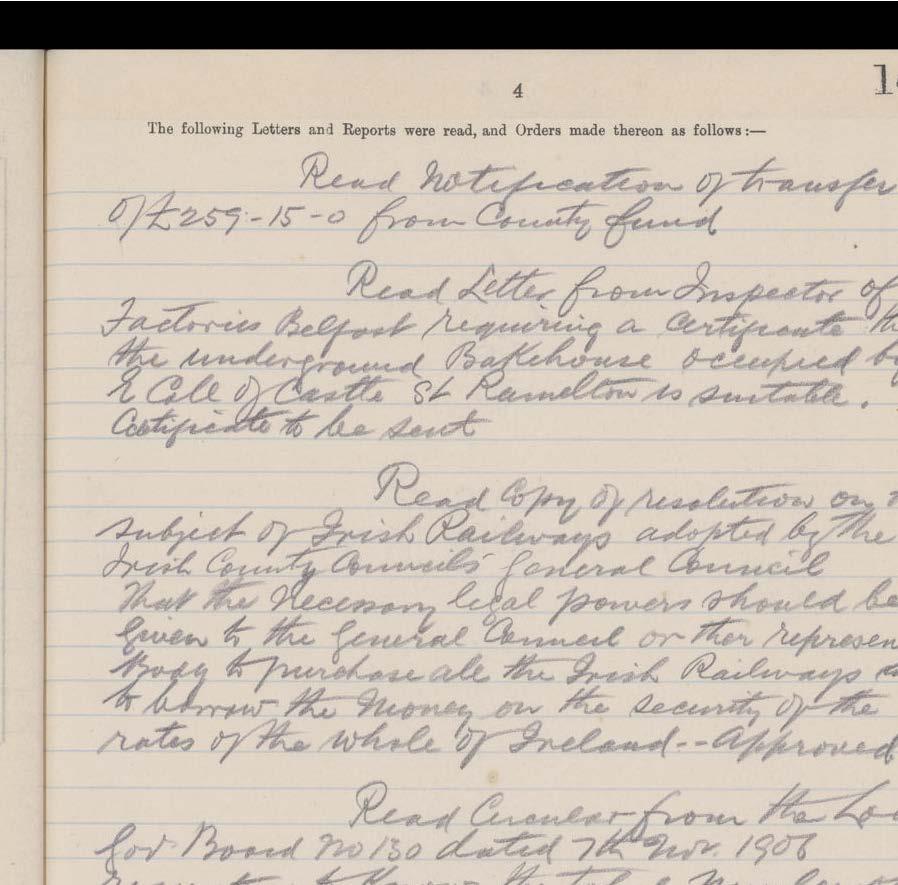 4
The following Letters and Reports were read, and Orders made thereon as follows:—
Read Notification of transfer
Of £259-15-0 from County fund
Read Letter from Inspector of
Factories Belfast requiring a Certificate
the underground Bakehouse occupied by
E Coll of Castle St Ramelton is suitable.
Certificate to be sent
Read Copy of resolution on
subject of Irish Railways adopted by the
Irish County Councils General Council
That the Necessary legal powers should be
given to the General Council or other
Body to purchase all the Irish Railways
to borrow the Money on the security of the
rates of the whole of Ireland--Approved
Read Circular from the
Gov Board No 130 dated 7th Nov. 1906